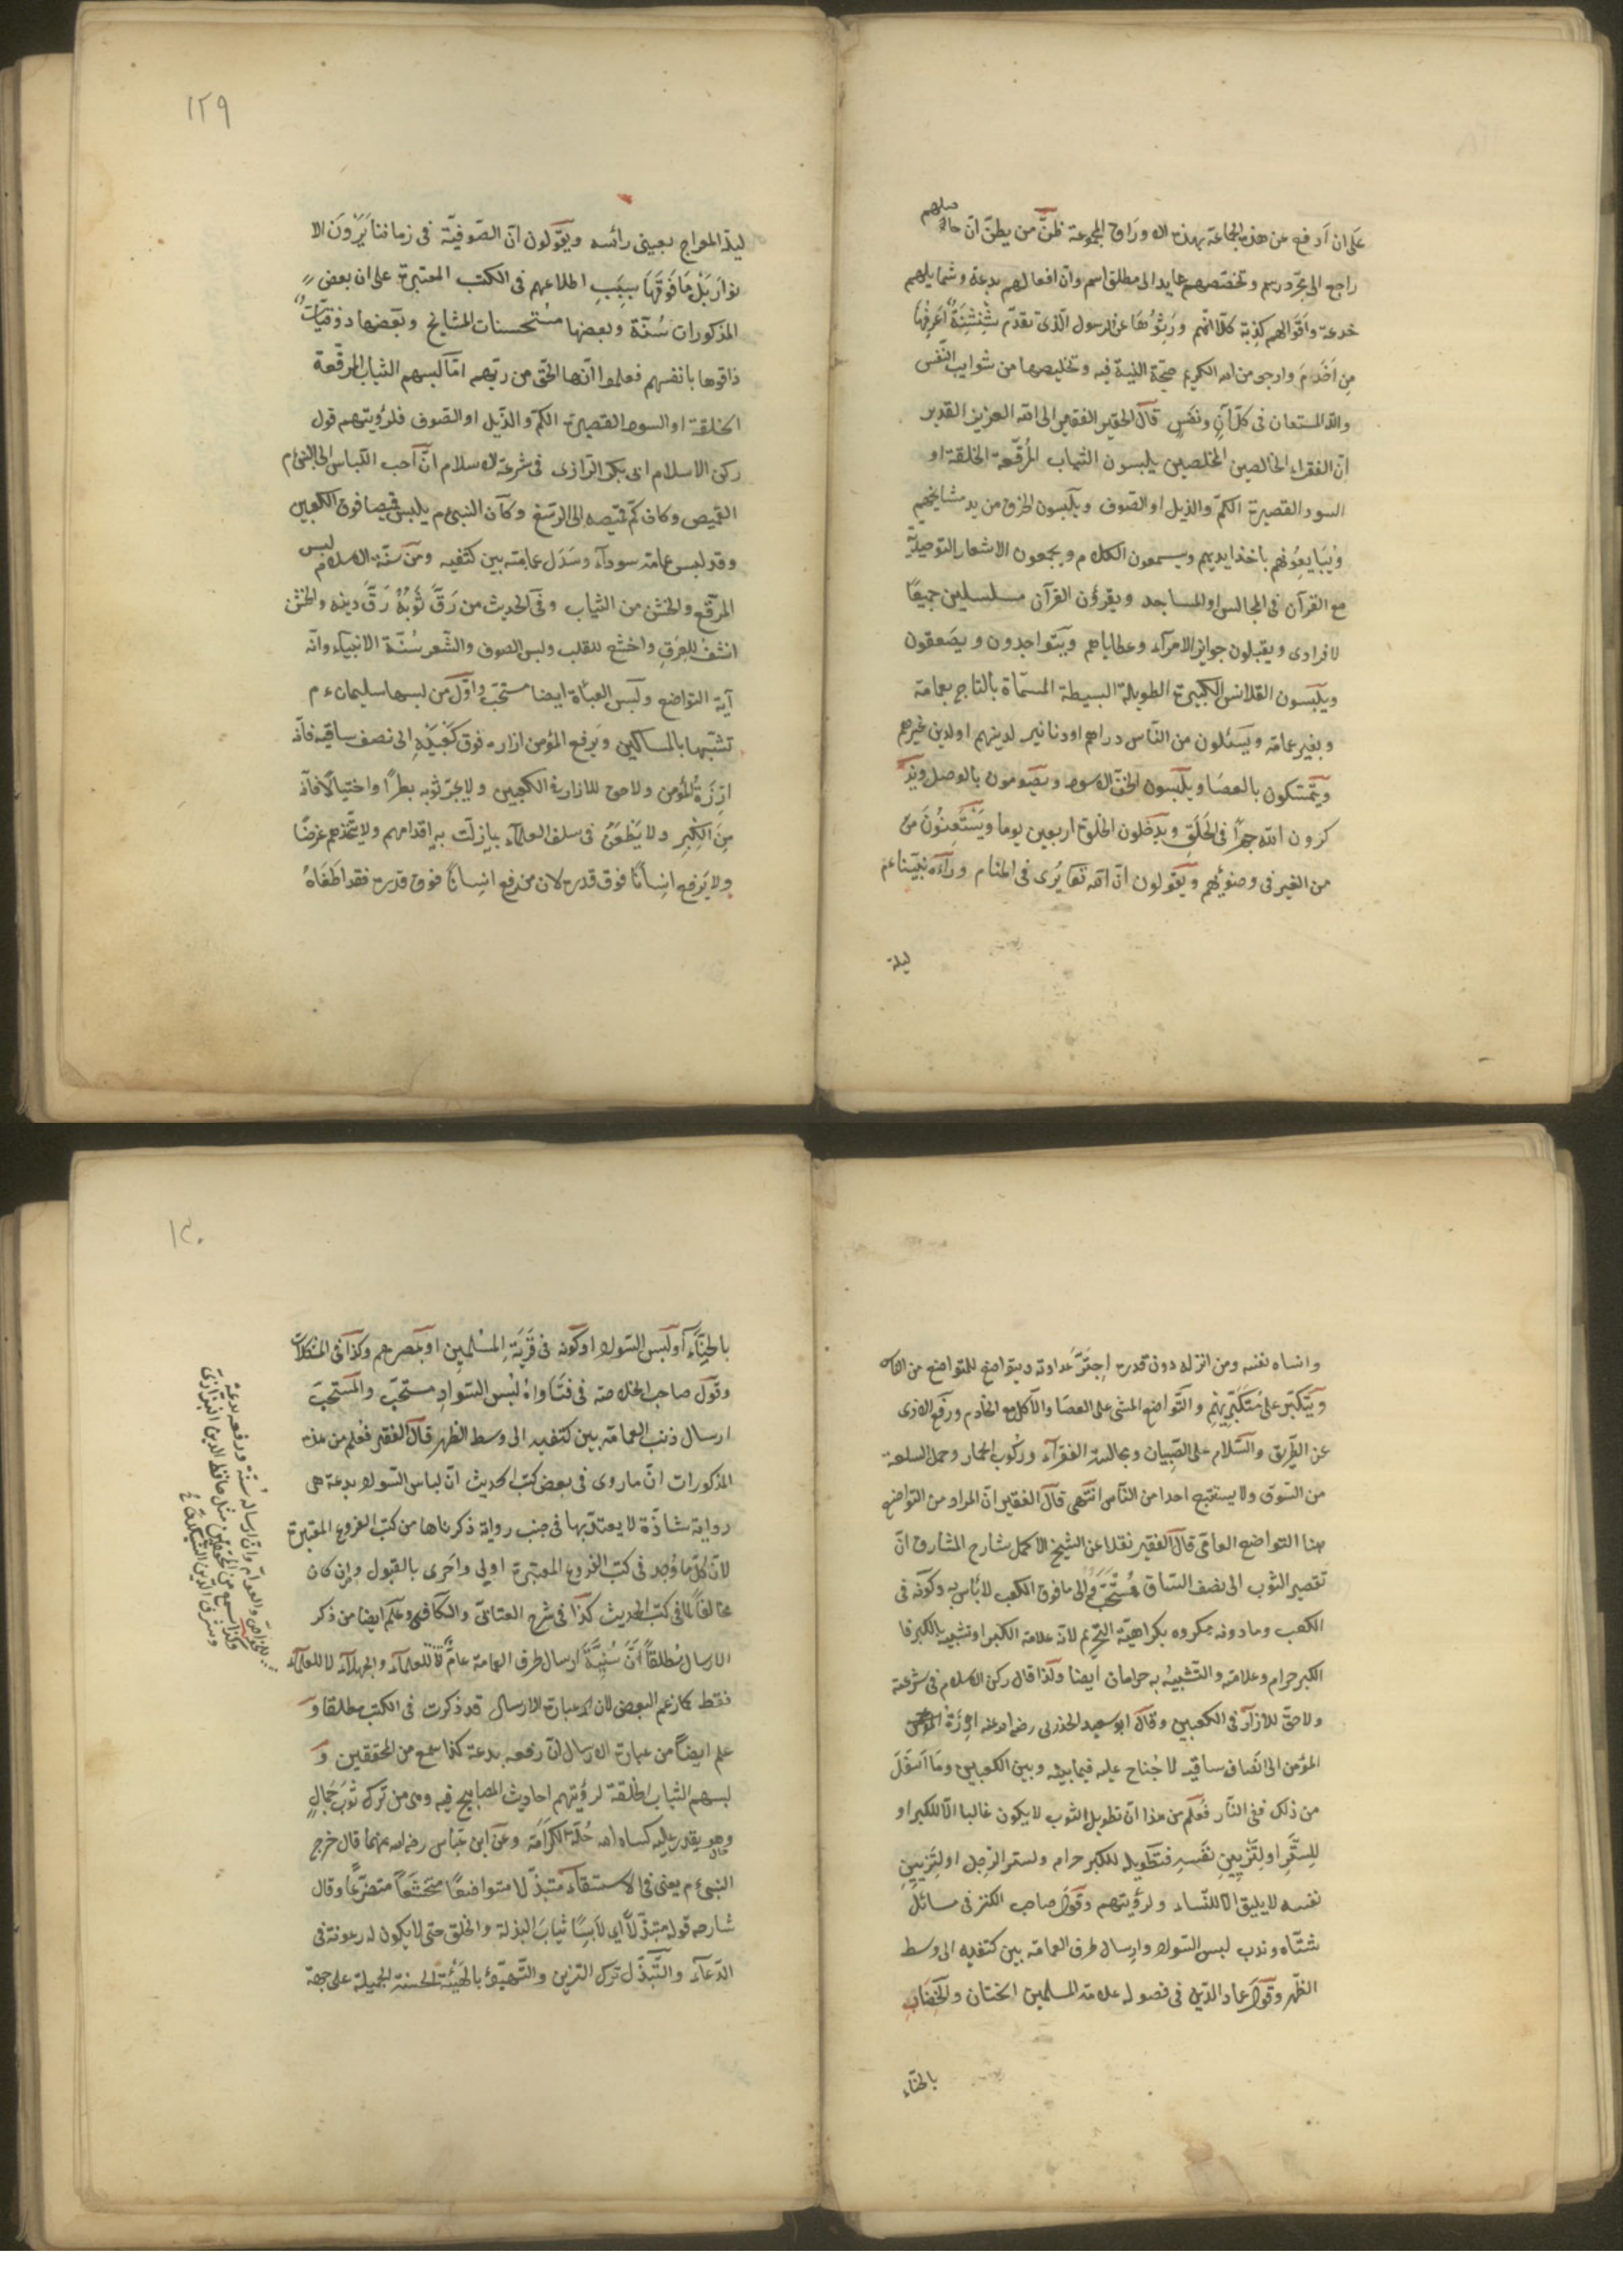 على ان أدفع عن هذه الجماعة بهذه الاوراق المجموعة ظنّ من يظنّ انّ حالهم
راجع الى مجرّد رسم وتخصّصهم عايد الى مطلق اسم وانّ افعالهم بدعة وشمايلهم
خدعة واقوالهم كذبة كلّا انّهم ورثوها عن الرسول الّذى تقدّم شِنْشِنَةٌ أعرفها
من اخزم وارجو من الله الكريم صحّة النيّة فيه وتخليصها من شوايب النّفس
والله المستعان فى كلّ آن ونفس قال الحقير الفقير الى الله العزيز القدير
انّ الفقراء الخالصين المخلصين يلبسون الثياب المُرقّعة الخلقة او
السود القصيرة الكمّ والذيل او الصّوف ويلبسون الخرق من يد مشايخهم
ويبايعونهم باخذ ايديهم ويسمعون الكلام ويجمعون الاشعار التوحيدية
مع القرآن فى المجالس او المساجد ويقرؤن القرآن مسلسلين جميعًا
لا فرادى ويقبلون جوايز الامرآء وعطاياهم ويتواجدون ويصعقون
ويلبسون القلانس الكبيرة الطويلة البسيطة المسمّاة بالتاج بعمامة
وبغير عمامة ويسئلون من النّاس دراهم او دنانير لدينهم او لدين غيرهم
ويتمسّكون بالعصا ويلبسون الخفّ الاسود ويصومون بالوصل ويذ
كرون الله جهرًا فى الحَلَق ويدخلون الخلوة اربعين يوما ويستعينون من
من الغير فى وضوئهم ويقولون انّ الله تعا يُرى فى المنام ورآه نبيّنا عم
ليلة
١٢٩
ليلة المعراج بعينى رأسه ويقولون انّ الصّوفيّة فى زماننا يَرَوْنَ الا
نوار بل ما فوقها بسبب اطلاعهم فى الكتب المعتبرة على ان بعض
المذكورات سُنّة وبعضها مستحسنات المشايخ وبعضها ذوقيّات
ذاقوها بانفسهم فعلموا انّها الحق من ربّهم امّا لبسهم الثياب المرقّعة
الخلقة او السود القصيرة الكمّ والذّيل او الصّوف فلرؤيتهم قول
ركن الاسلام ابى بكر الرازى فى شرعة الاسلام انّ احب اللباس الى النبى م
القميص وكان كمّ قميصه الى الرسغ وكان النبى م يلبس قميصا فوق الكعبين
وقد لبس عمامة سودآء وسَدَل عمامته بين كتفيه ومن سنّة الاسلام لبس
المرقّع والخشن من الثياب وفى الحديث من رَقَّ ثَوبُهُ رَقَّ دينه والخشن
انشف للعرق واخشع للقلب ولبس الصوف والشّعر سُنّة الانبيآء وانّه
آية التواضع ولبس العبآة ايضا مستحبّ واوّل من لبسها سليمان ء م
تشبّها بالمساكين ويرفع المؤمن ازاره فوق كعبيه الى نصف ساقيه فانّه
ازرة المؤمن ولا حق للازار فى الكعبين ولا يجرّ ثوبه بطرًا واختيالًا فانّه
من الكبر ولا يطعن فى سلف العلمآء بما زلّت به اقدامهم ولا يتّخذهم غرضًا
ولا يرفع انسانًا فوق قدره لان من رفع انسانًا فوق قدره فقد اطغاهُ
وانساه نفسه ومن انزله دون قدره اجترّ عداوته ويتواضع للمتواضع من الناس
ويتكبّر على متكبّريهم والتّواضع المشى على العصا والاكل مع الخادم ورفع الاذى
عن الطّريق والسّلام على الصّبيان ومجالسة الفقرآء وركوب الحمار وحمل السلعة
من السّوق ولا يستقبح احدا من النّاس انتهى قال الفقير انّ المراد من التواضع
هنا التواضع العامّى قال الفقير نقلا عن الشيخ الاكمل شارح المشارق انّ
تقصير الثّوب الى نصف السّاق مُستحبّ والى ما فوق الكعب لا بأس به وكونه فى
الكعب وما دونه مكروه بكراهيّة التحريم لانّه علامة الكبر او تشبيه بالكبر فا
الكبر حرام وعلامته والتّشبيهُ به حرامان ايضا ولذا قال ركن الاسلام فى شرعته
ولا حقّ للازآر فى الكعبين وقال ابو سعيد الخدرى رضى الله عنه ازرَة
المؤمن الى انصاف ساقيه لا جُناح عليه فيما بينه وبين الكعبين وما اَسْفَلَ
من ذلك ففى النّار فعُلم من هذا انّ تطويل الثوب لا يكون غالبا الّا للكبر او
للسّتر او لتزيين نفسه فتطويله للكبر حرام ولستر الرّجل او لتزيين
نفسه لا يليق الّا للنّساء ولرؤيتهم وقول صاحب الكنز فى مسائل
شتّاه وندب لبس السّواد وارسال طرف العمامة بين كتفيه الى وسط
الظّهر وقول عماد الدّين فى فصوله علامة المسلمين الختان والخضاب
بالحنّاء
١٣٠
بالحنّاء او لبس السّواد او كونه فى قرية المسلمين او بمصرهم وكذا فى المشكلات
وقول صاحب الخلاصة فى فتاواهُ لُبس السّواد مستحبّ والمستحبّ
ارسال ذنب العمامة بين كتفيه الى وسط الظهر قال الفقير فعُلم من هذه
المذكورات انّ ما روى فى بعض كتب الحديث انّ لباس السّواد بدعة هى
رواية شاذّة لا يعتدّ بها فى جنب رواية ذكرناها من كتب الفروع المعتبرة
لانّ كلّ ما وُجد فى كتب الفروع المعتبرة اولى واحرى بالقبول وان كان
مخالفاً لما فى كتب الحديث كذا فى شرح العتابىّ والكافى وعُلم ايضا من ذكر
الارسال مُطلقاً انّ سُنّيّة ارسال طرف العمامة عامّة للعلمآء والجهلآء لا للعلمآء
فقط كما زعم البعض لان عبارة الارسال قد ذكرت فى الكتب مطلقا و
علم ايضاً من عبارة الارسال انّ رفعه بدعة كذا سمع من المحققين و
لبسهم الثياب الخلقة لرؤيتهم احاديث المصابيح فيه ومى من ترك ثوب جمالٍ
وهو يقدر عليه كساه الله حُلّة الكرامة وعن ابن عبّاس رضى الله عنهما قال خرج
النبى م يعنى فى الاستسقآء متبذّلا متواضعًا متخشّعاً متضرّعًا وقال
شارحه قوله متبذّلًا اى لابسًا ثياب البذلة والخلق حتى لا يكون له رعونة فى
الدّعآء والتّبذّل ترك التزين والتّهيّؤ بالهيئة الحسنة الجميلة على جهة
للخواصّ والعوامّ وانّ ارساله سُنّة ورفعه بدعة
وكذا سمع من المحققين مثل حافظ الدين البزّازى